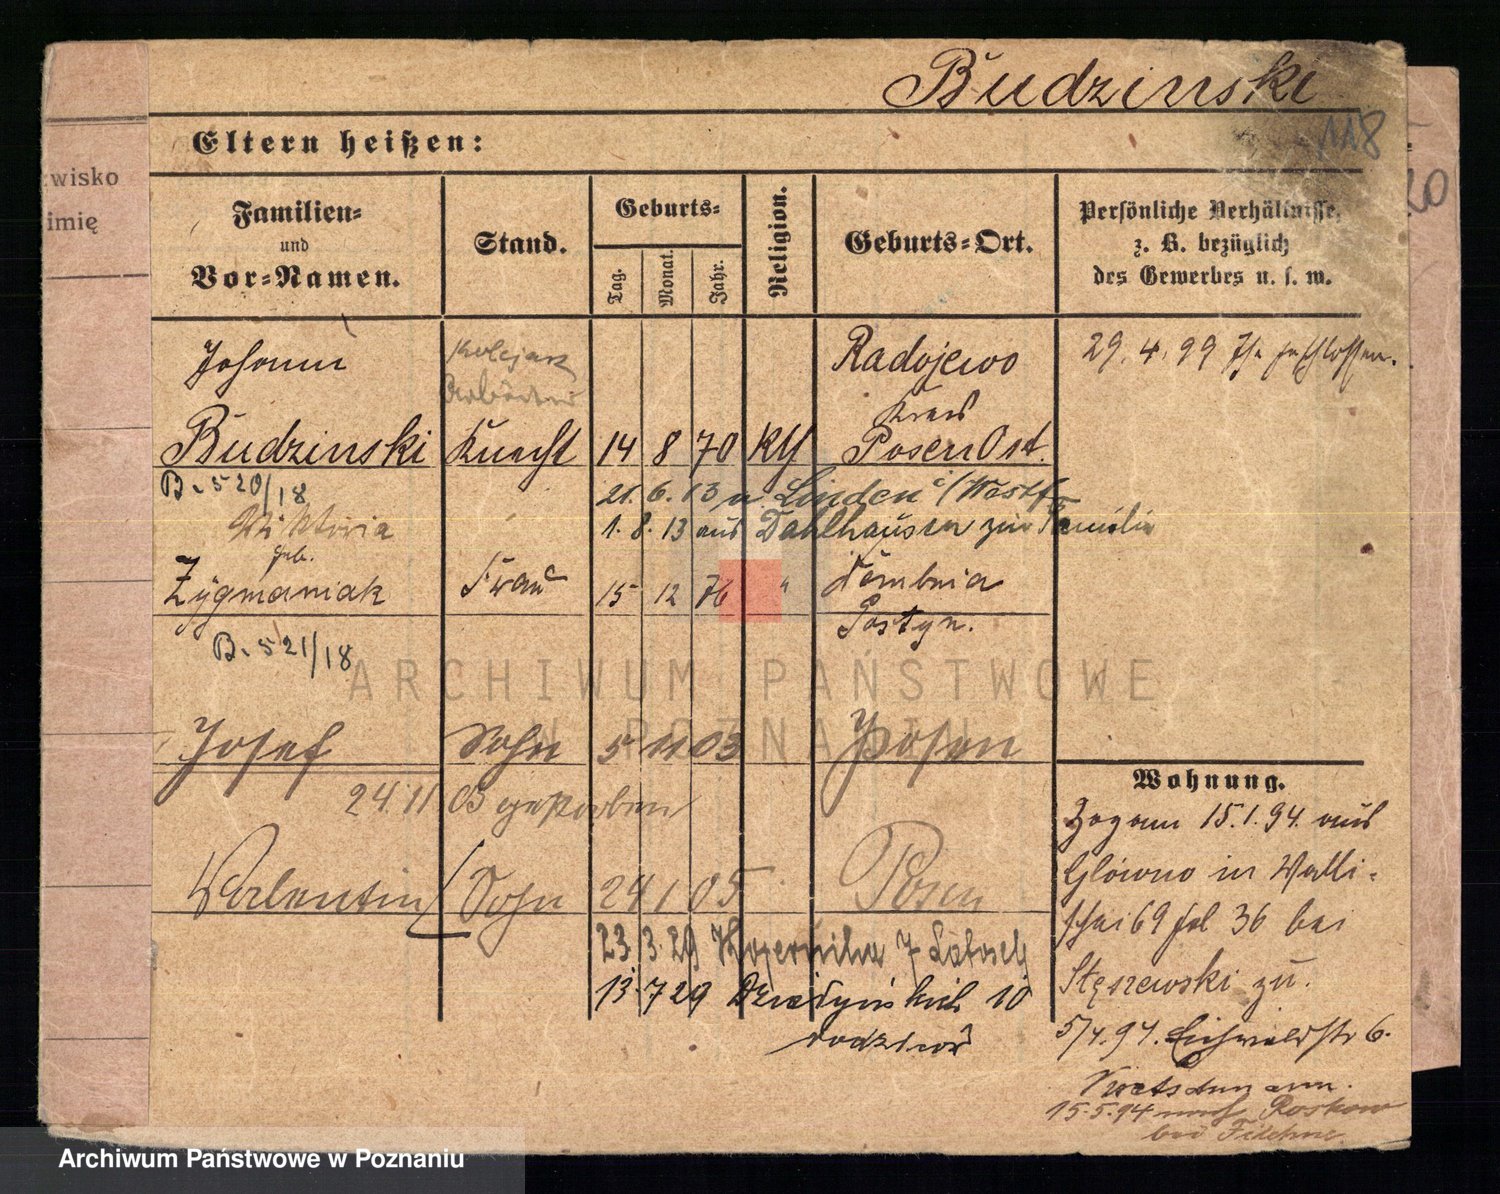 Budzinski
118
Eltern heißen:
zwisko
imię
Familien=
und
Vor=Namen.
Stand.
Geburts=
Tag.
Monat.
Jahr.
Religion.
Geburts=Ort.
Persönliche Verhältnisse,
z. B. bezüglich
des Gewerbes u. s. w.
Johann
Kolejarz
Radojewo
29. 4. 99 Ehe geschlossen.
Kreis
Budzinski Knecht 14 8 70 Kth Posen Ost.
B. 520/18
21. 6. 13 n. Linden i/Westf.
Wiktoria
1. 8. 13 aus Dahlhausen zur Familie
geb.
Zygmaniak Frau 15 12 76 " Dembnia
Gostyn.
B. 521/18
ARCHIWUM PAŃSTWOWE
W POZNANIU
Josef Sohn 5 11 03 Posen
24 11 03 gestorben
Valentin Sohn 24 1 05 Posen
23. 3. 29 7
13. 7 29 10
rodziców
Wohnung.
Zogann 15. 1. 94. aus
Glówno in Walli-
schei 69 bei
Stęszewski zu.
5/4. 94. Eichwaldstr 6.
15. 5. 94 nach Roskow
bei Filehne
Archiwum Państwowe w Poznaniu